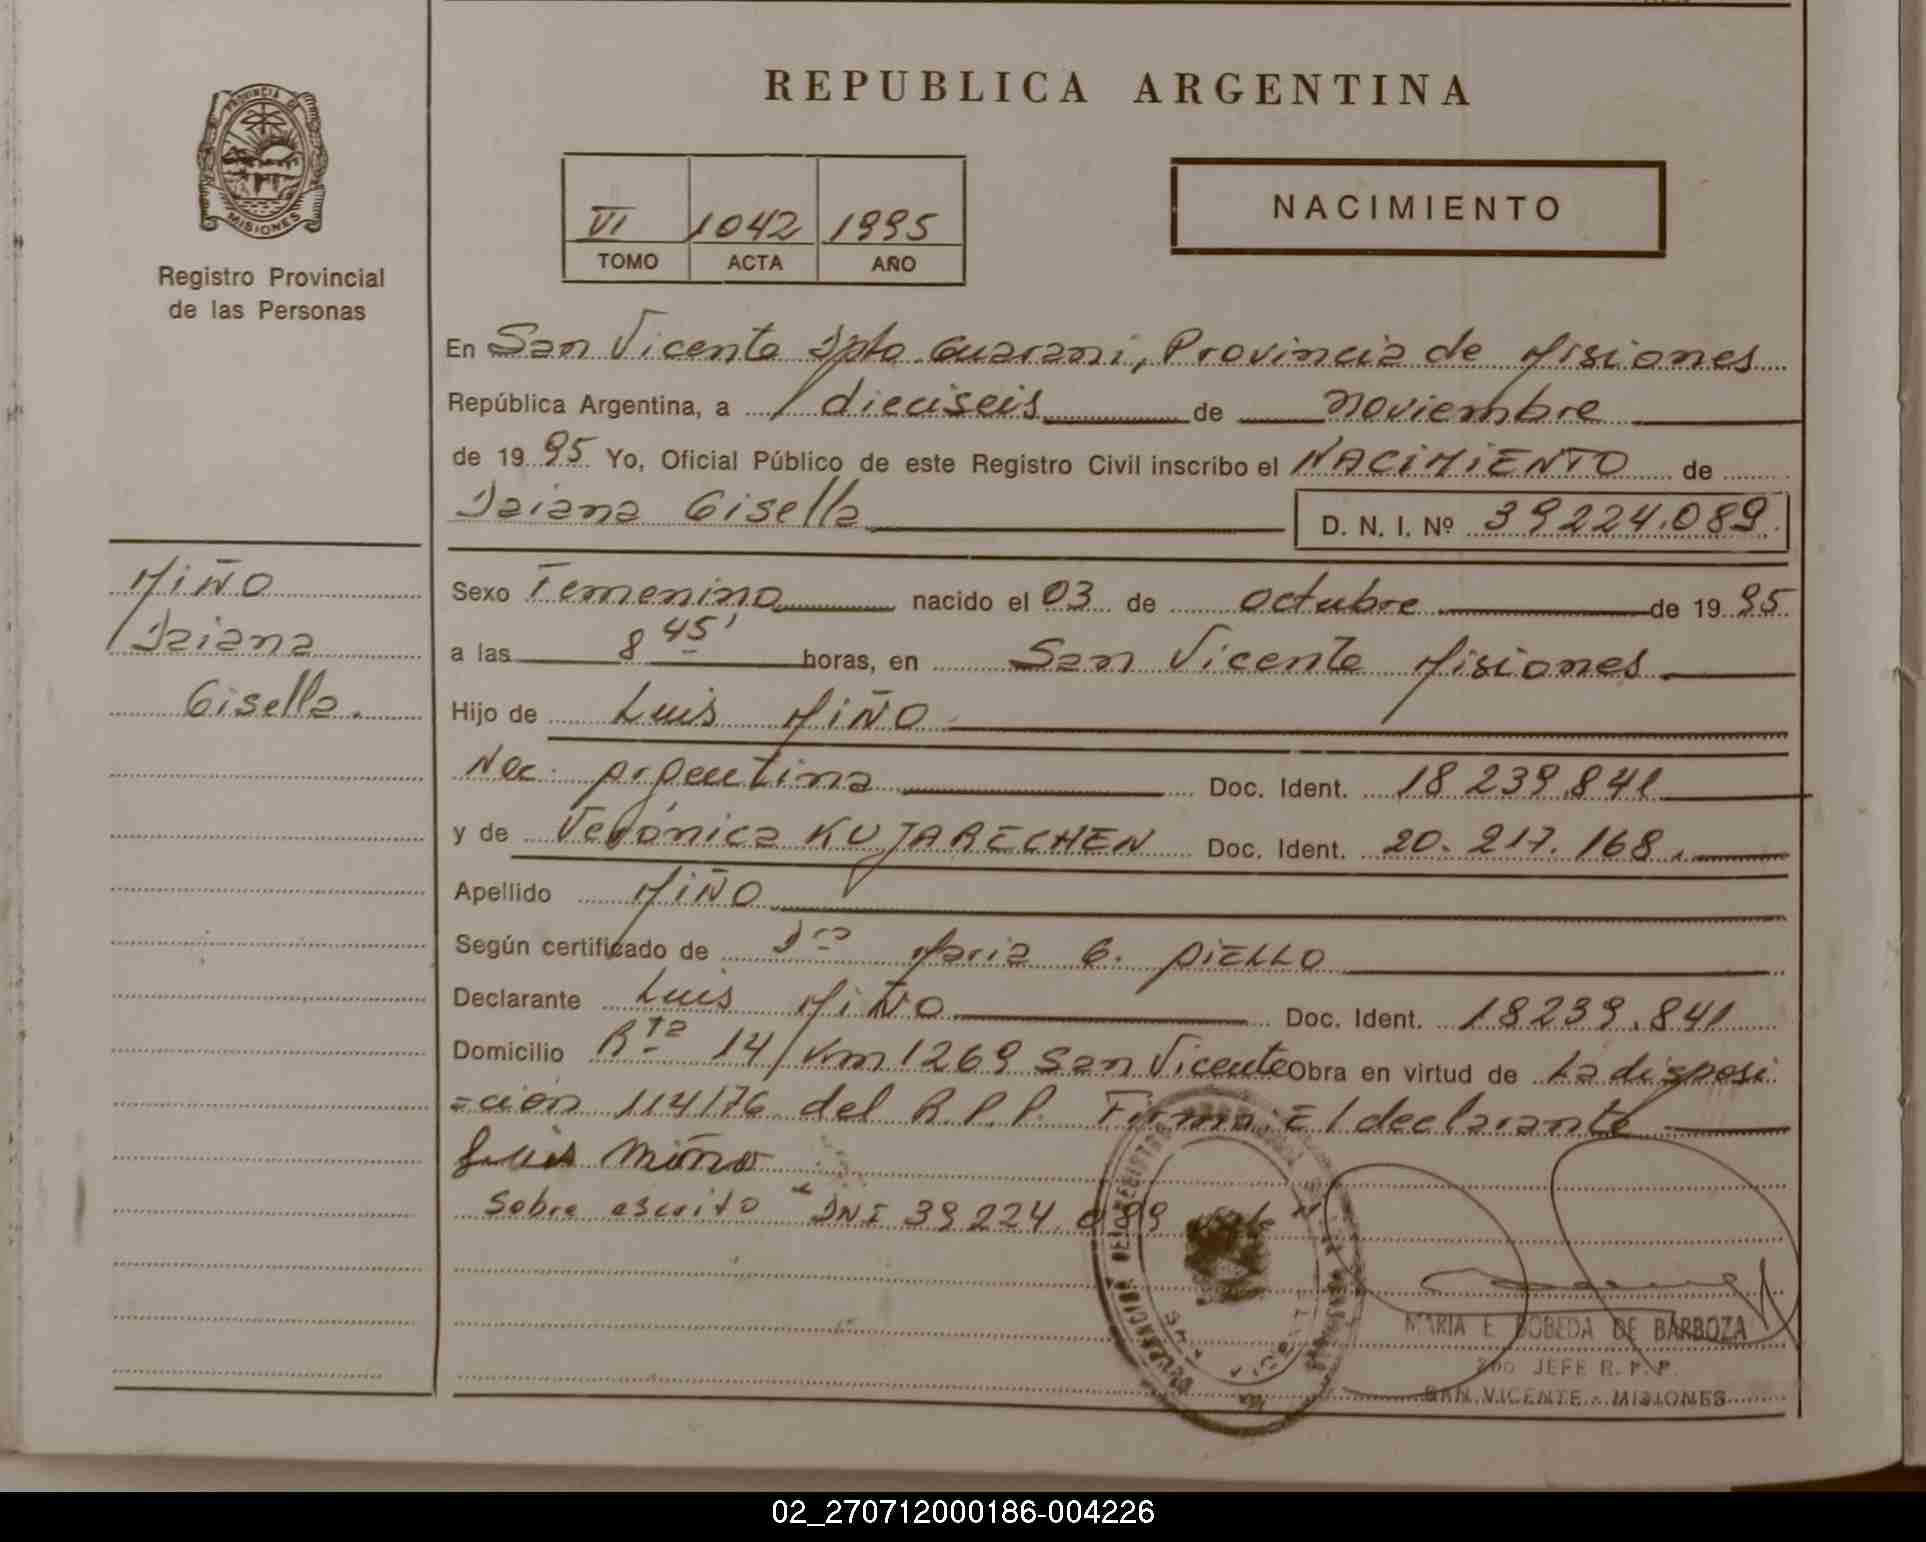 REPUBLICA ARGENTINA
PROVINCIA DE
MISIONES
Registro Provincial
de las Personas
VI 1042 1995
TOMO ACTA AÑO
NACIMIENTO
En San Vicente Dpto Guarani, Provincia de Misiones
República Argentina, a dieciseis de noviembre
de 1995 Yo, Oficial Público de este Registro Civil inscribo el NACIMIENTO de
Daiana Gisella D. N. I. Nº 39224.089
MIÑO
Daiana
Gisella.
Sexo Femenino nacido el 03 de octubre de 1995
a las 8 45' horas, en San Vicente Misiones
Hijo de Luis MIÑO
Nac. Argentina Doc. Ident. 18 239.841
y de Verónica KUJARECHEN Doc. Ident. 20.217.168.
Apellido MIÑO
Según certificado de Dra Maria G. AIELLO
Declarante Luis MIÑO Doc. Ident. 18239.841
Domicilio Rta 14 / Km 1269 San Vicente Obra en virtud de La disposi
=cion 114/76 del R.P.P. Firma: El declarante
Luis Miño
Sobre escrito "DNI 39224.089 Vale"
MARIA E BOBEDA DE BARBOZA
2do JEFE R. P. P.
SAN VICENTE - MISIONES
02_270712000186-004226